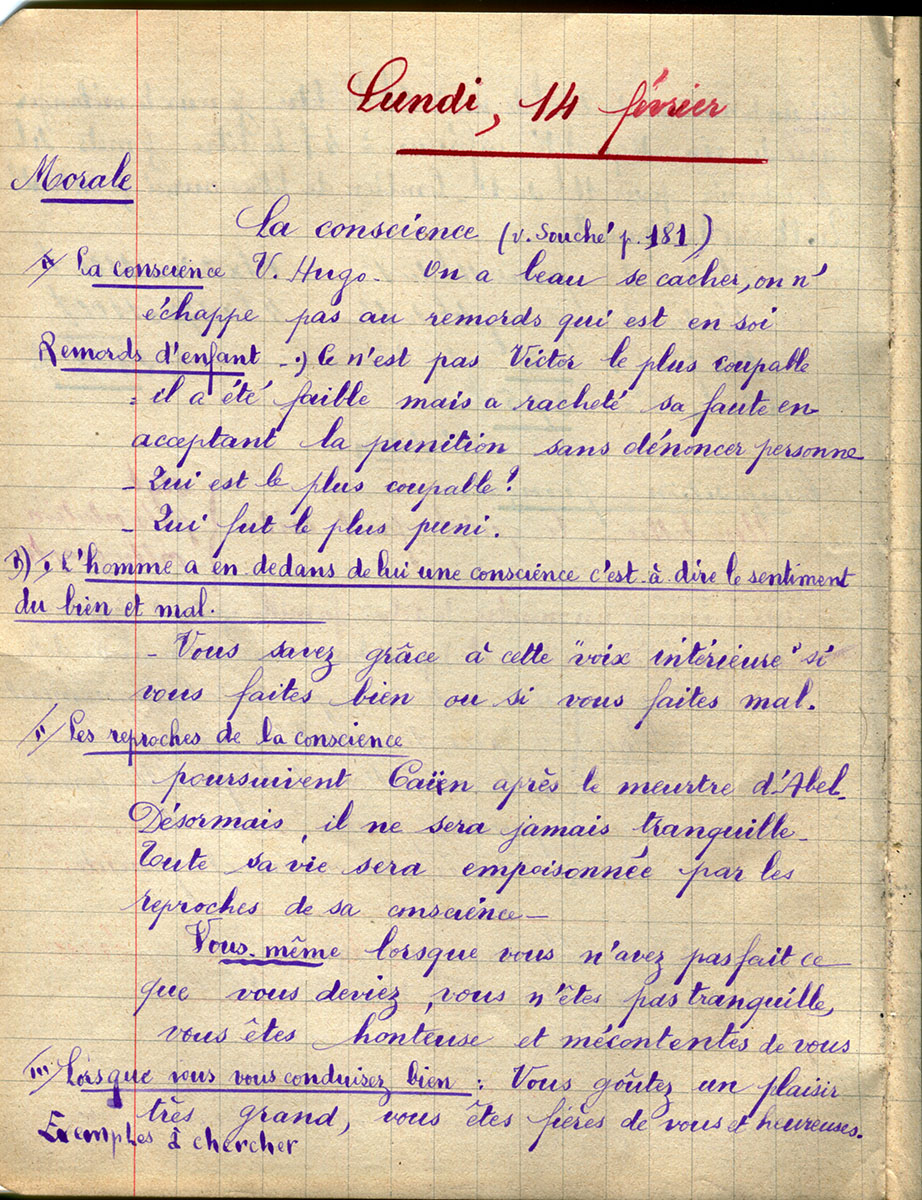 Lundi, 14 février
Morale
La conscience (v. Souché p. 181)
A/ La conscience V. Hugo. On a beau se cacher, on n'
échappe pas au remords qui est en soi
Remords d'enfant -:) Ce n'est pas Victor le plus coupable
: il a été faible mais a racheté sa faute en
acceptant la punition sans dénoncer personne
- Qui est le plus coupable?
- Qui fut le plus puni.
B) I L'homme a en dedans de lui une conscience c'est-à-dire le sentiment
du bien et mal.
- Vous savez grâce à cette "voix intérieure" si
vous faites bien ou si vous faites mal.
II/ Les reproches de la conscience
poursuivent Caïen après le meurtre d'Abel.
Désormais, il ne sera jamais tranquille-
Toute sa vie sera empoisonnée par les
reproches de sa conscience-
Vous-même lorsque vous n'avez pas fait ce
que vous deviez, vous n'êtes pas tranquille,
vous êtes honteuse et mécontentes de vous
III/ Lorsque vous vous conduisez bien : Vous goûtez un plaisir
très grand, vous êtes fières de vous et heureuses.
Exemples à chercher